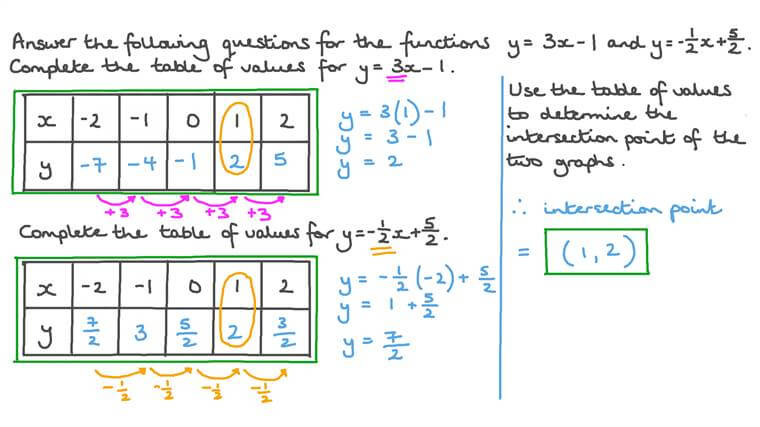 Answer the following questions for the functions y = 3x - 1 and y = -1/2x + 5/2.
Complete the table of values for y = 3x - 1.
x -2 -1 0 1 2
y -7 -4 -1 2 5
+3 +3 +3 +3
y = 3(1) - 1
y = 3 - 1
y = 2
Complete the table of values for y = -1/2x + 5/2.
x -2 -1 0 1 2
y 7/2 3 5/2 2 3/2
-1/2 -1/2 -1/2 -1/2
y = -1/2(-2) + 5/2
y = 1 + 5/2
y = 7/2
Use the table of values
to determine the
intersection point of the
two graphs.
∴ intersection point
= (1, 2)